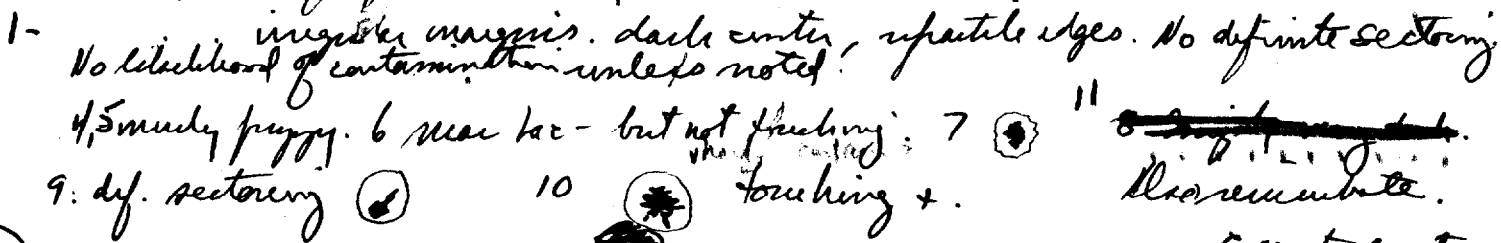 1- irregular margins. dark center, refractile edges. No definite sectoring.
No likelihood of contamination unless noted.
4,5 muddy puppy. 6 near lac - but not touching. 7 11 8
9: def. sectoring 10 touching +.